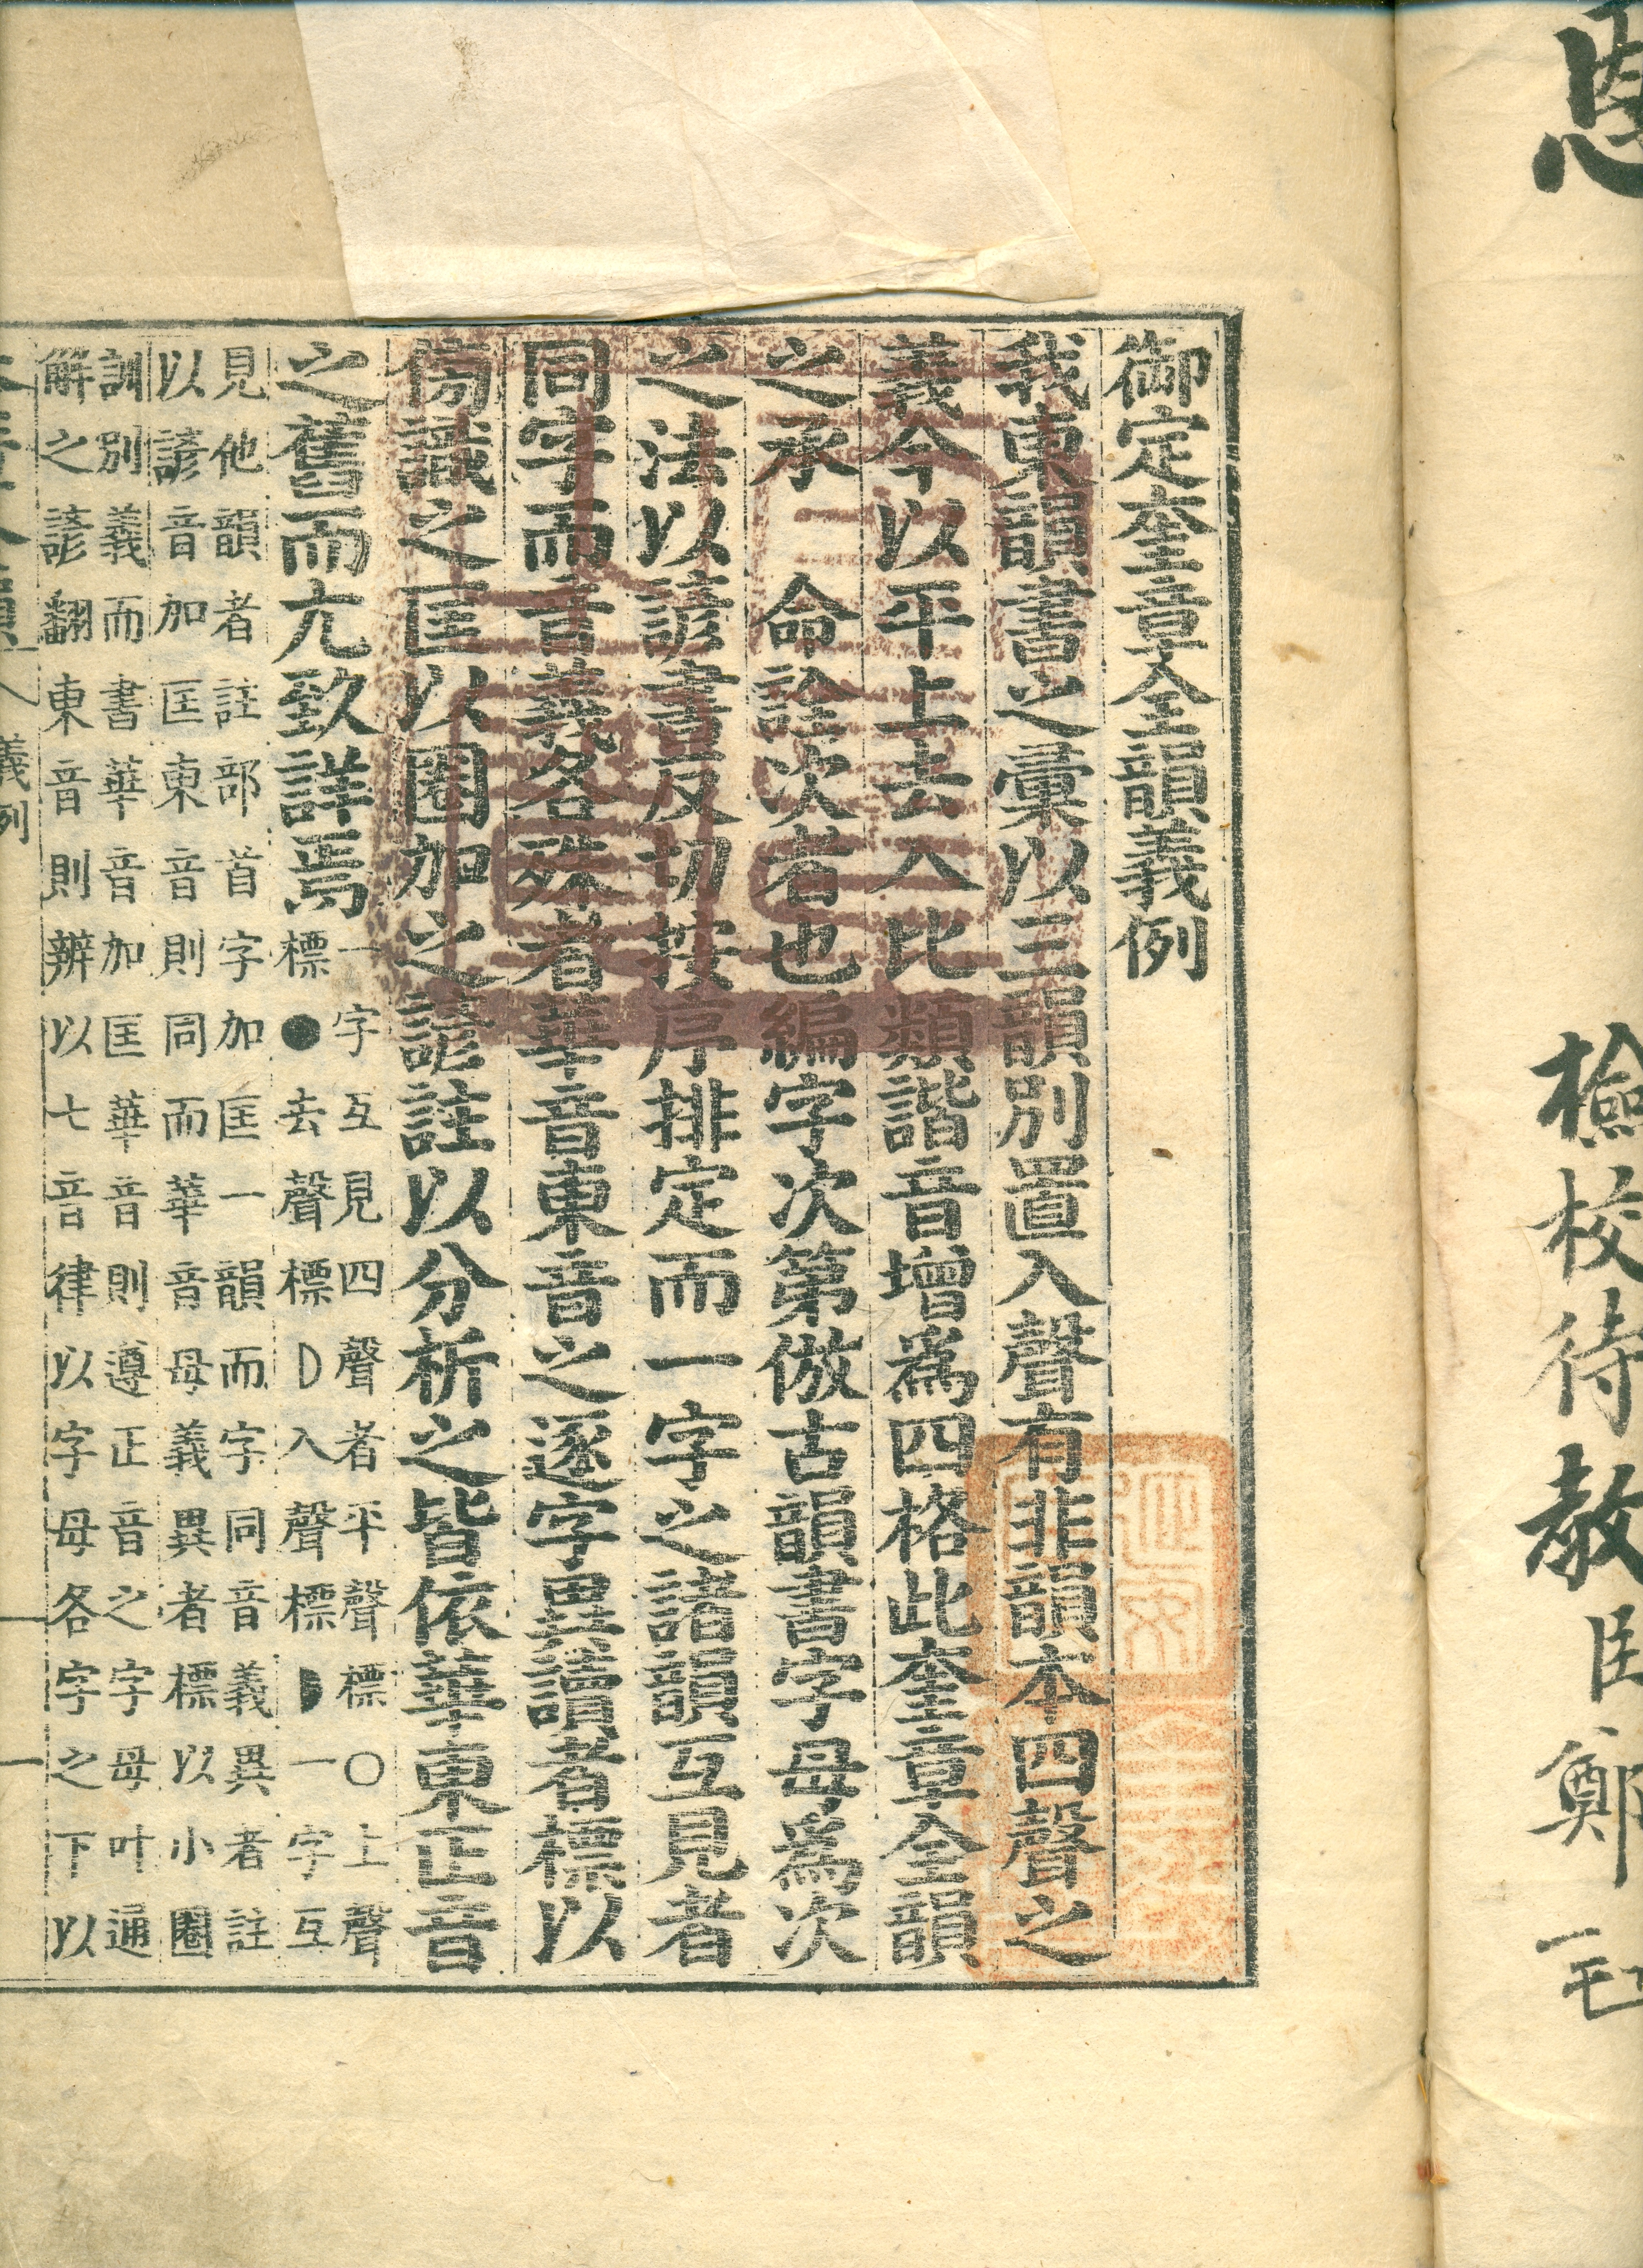 恩
檢校待教臣鄭
御定奎章全韻義例
我東韻書之彙以三韻別置入聲有非韻本四聲之
義今以平上去入比類諧音增爲四格此奎章全韻
之承
命詮次者也編字次第倣古韻書字母爲次
之法以諺書反切按序排定而一字之諸韻互見者
同字而音義各殊者華音東音之逐字異讀者標以
傍識之匡以圈加之諺註以分析之皆依華東正音
之舊而亢致詳焉
一字互見四聲者平聲標○上聲
標●去聲標D入聲標◗一字互
見他韻者註部首字加匡一韻而字同音義異者註
以諺音加匡東音則同而華音母義異者標以小圈
訓別義而書華音加匡華音則遵正音之字母叶通
解之諺翻東音則辨以七音律以字母各字之下以
義例
一